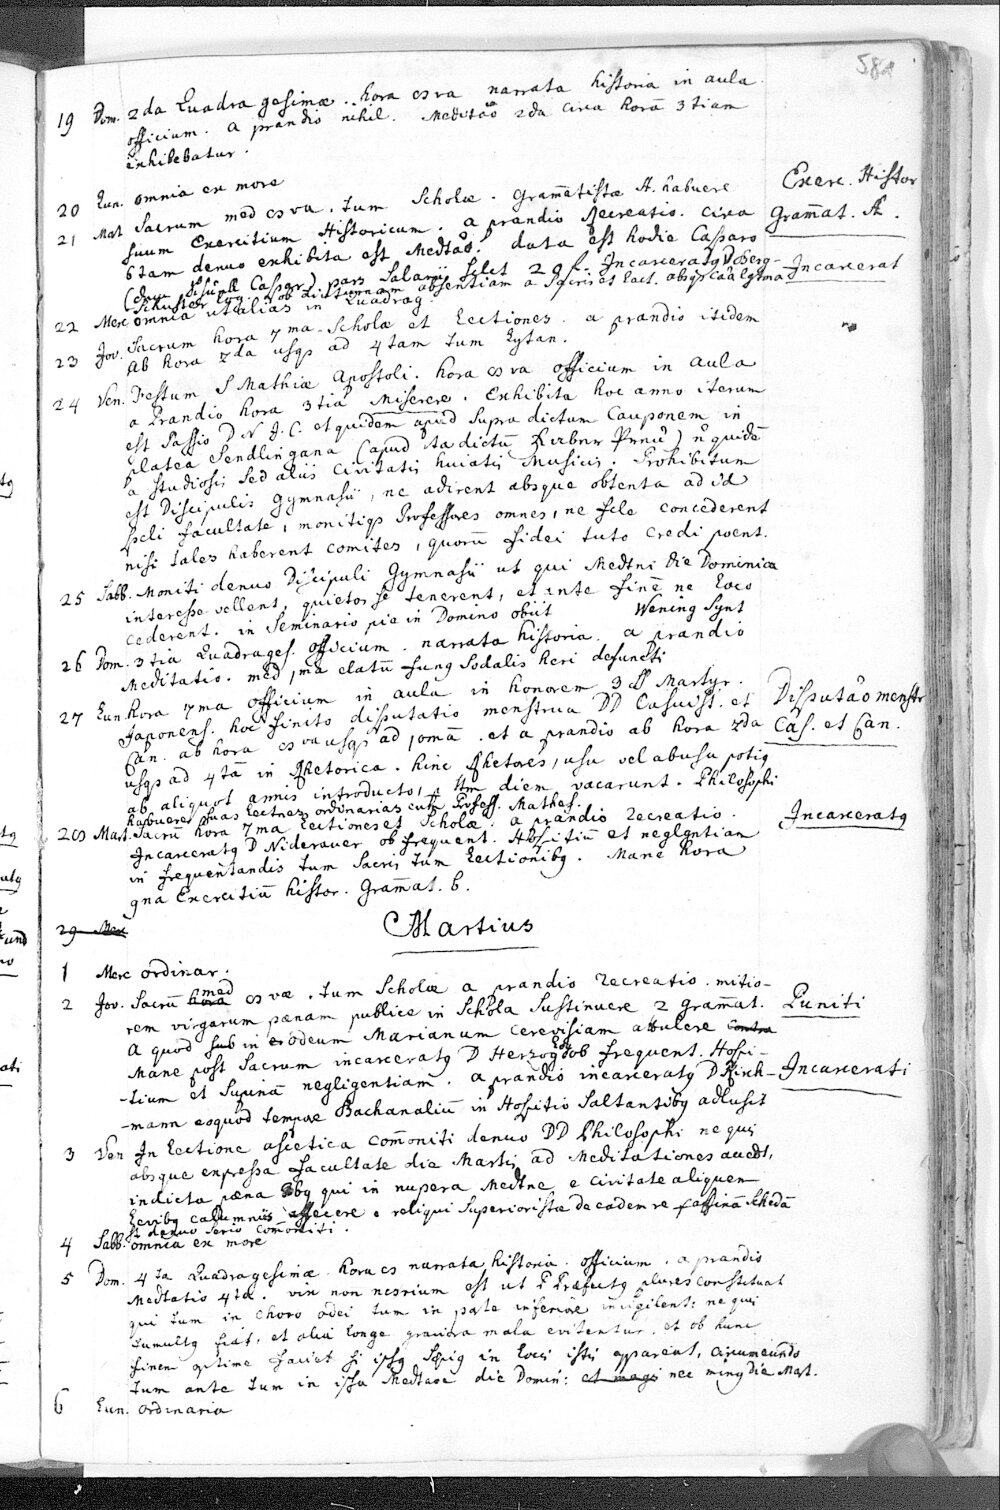 58
19 Dom. 2da Quadragesimæ. hora 8va narrata historia in aula
officium. a prandio nihil. Meditatio 2da circa horā 3tiam
inhibebatur.
20 Lun. omnia ex more
21 Mart Sacrum med 8va. tum Scholæ. Gramatistæ A. habuere Exerc. Histor
suum Exercitium Historicum. a prandio Recreatio. circa Gramat. A.
6tam denuo exhibita est Medtao. data est hodie Casparo
pars Salarij Incarceratg D Berg- Incarcerat
ob diuturnam absentiam a Sacris et Lect.
22 Merc omnia ut alias in Quadrag.
23 Jov. Sacrum hora 7ma. Scholæ et Lectiones. a prandio itidem
ab hora 2da usqs ad 4tam tum Lytan.
24 Ven. Festum S Mathiæ Apostoli. hora 8va officium in aula
a Prandio hora 3tia Miserere. Exhibita hoc anno iterum
est Passio D N J. C. et quidem apud Supra dictum Cauponem in
platea Sendlingana (apud
a Studiosis sed aliis Civitatis huiatis Musicis. Prohibitum
est Discipulis Gymnasii, ne adirent absque obtenta ad id
speli facultate, monitiqs Professores omnes, ne fele concederent
nisi tales haberent comites, quorū fidei tuto credi poent.
25 Sabb. Moniti denuo Discipuli Gymnasii ut qui Medtni die Dominica
interesse vellent, quietos se tenerent, et ante finē ne Loco
cederent. in Seminario pie in Domino obiit Wening Synt
26 Dom. 3tia Quadrages. officium. narrata historia. a prandio
Meditatio. med 1ma elatū funq Sodalis heri defuncti
27 Lun. Hora 7ma officium in aula in honorem 3 SS Martyr. Disputāo menstr
Japonens. hoc finito disputatio menstrua DD Casuist. et Cas. et Can.
Can. ab hora 8va usqs ad 10mā. et a prandio ab hora 2da
usqs ad 4tā in Rhetorica. hinc Rhetores, usu vel abusu potig
ab aliquot annis introducto, diem vacarunt. Philosophi
habuere suas Lectnes ordinarias cum Profess. Mathes.
28 Mart. Sacrū hora 7ma Lectiones et Scholæ. a prandio recreatio. Incarceratg
Incarceratg D Niderauer ob frequent. Hospitiū et neglgntiam
in frequentandis tum Sacris tum Lectionibg. Mane hora
9na Exercitiū histor. Gramat. b.
29 Merc
Martius
1 Merc ordinar.
2 Jov. Sacrū hora med 8væ. tum Scholæ a prandio recreatio. mitio-
rem virgarum pænam publice in Schola Sustinuere 2 Gramat. Puniti
a quod sub in odeum Marianum cerevisiam attulere contra
Mane post Sacrum incarceratg D Herzog ob frequent. Hospi- Incarcerati
-tium et Supinā negligentiam. a prandio incarceratg D Rink-
-mann eoquod tempore Bachanaliū in Hospitio Saltantibg adlusit
3 Ven In Lectione ascetica comoniti denuo DD Philosophi ne quis
absque expressa facultate die Martis ad Meditationes accedt,
indicta pæna qui in nupera Medtne e civitate aliquem
calumniis affecere e reliqui Superioristæ de eadem re
denuo serio comoniti.
4 Sabb. omnia ex more
5 Dom. 4ta Quadragesimæ. hora 8 narrata historia. officium. a prandio
Medtatio 4ta. vix non nesrium est ut P Præfectg plures constituat
qui tum in choro odei tum in parte inferiore invigilent: ne quis
tumultg fiat, et alia longe graviora mala evitentur. et ob hunc
finem optime faciet si ipsg sæpig in locis istis appareat, circumeundo
tum ante tum in ipsa Medtaoe die Domin: et magis nec ming die Mart.
6 Lun. ordinaria